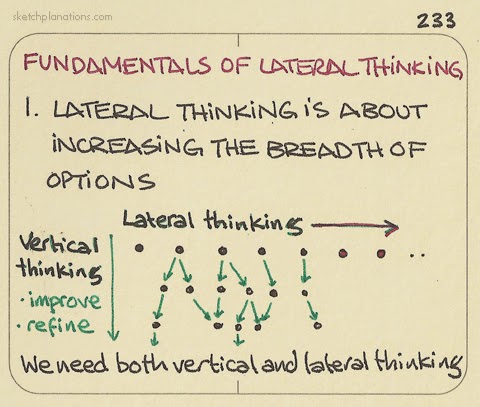 sketchplanations.com
233
FUNDAMENTALS OF LATERAL THINKING
1. LATERAL THINKING IS ABOUT
INCREASING THE BREADTH OF
OPTIONS
Lateral thinking
Vertical
thinking
· improve
· refine
We need both vertical and lateral thinking